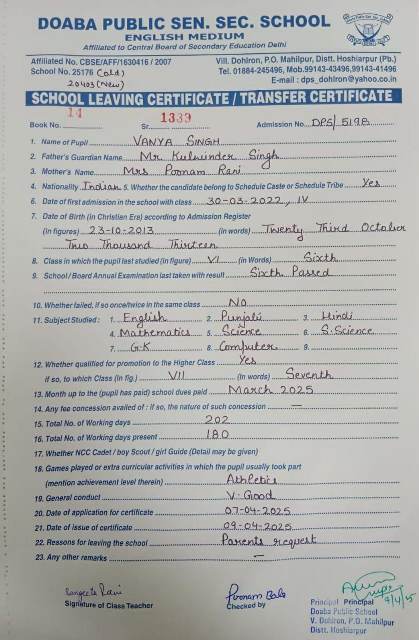 DOABA PUBLIC SEN. SEC. SCHOOL
ENGLISH MEDIUM
Affiliated to Central Board of Secondary Education Delhi
Affiliated No. CBSE/AFF/1630416 / 2007 Vill. Dohlron, P.O. Mahilpur, Distt. Hoshiarpur (Pb.)
School No. 25176 (old) Tel. 01884-245496, Mob.99143-43296,99141-43496
20403 (New) E-mail : dps_dohlron@yahoo.co.in
SCHOOL LEAVING CERTIFICATE / TRANSFER CERTIFICATE
Book No. 14 Sr. 1339 Admission No. DPS/5198
1. Name of Pupil VANYA SINGH
2. Father's Guardian Name Mr. Kulwinder Singh
3. Mother's Name Mrs Poonam Rani
4. Nationality Indian 5. Whether the candidate belong to Schedule Caste or Schedule Tribe Yes
6. Date of first admission in the school with class 30-03-2022, IV
7. Date of Birth (in Christian Era) according to Admission Register
(in figures) 23-10-2013 (in words) Twenty Third October
Two Thousand Thirteen
8. Class in which the pupil last studied (in figure) VI (in Words) Sixth
9. School / Board Annual Examination last taken with result Sixth Passed
10. Whether failed, if so once/twice in the same class NO
11. Subject Studied : 1. English 2. Punjabi 3. Hindi
4. Mathematics 5. Science 6. S.Science
7. G.K 8. Computer 9.
12. Whether qualified for promotion to the Higher Class Yes
if so, to which Class (in fig.) VII (in words) Seventh
13. Month up to the (pupil has paid) school dues paid March 2025
14. Any fee concession availed of : if so, the nature of such concession —
15. Total No. of Working days 202
16. Total No. of Working days present 180
17. Whether NCC Cadet / boy Scout / girl Guide (Detail may be given)
18. Games played or extra curricular activities in which the pupil usually took part
(mention achievement level therein) Athletics
19. General conduct V. Good
20. Date of application for certificate 07-04-2025
21. Date of issue of certificate 09-04-2025
22. Reasons for leaving the school Parents request
23. Any other remarks —
Sangeeta Rani Poonam Bala
Signature of Class Teacher Checked by Principal Principal
Doaba Public School
V. Dohlron, P.O. Mahilpur
Distt. Hoshiarpur